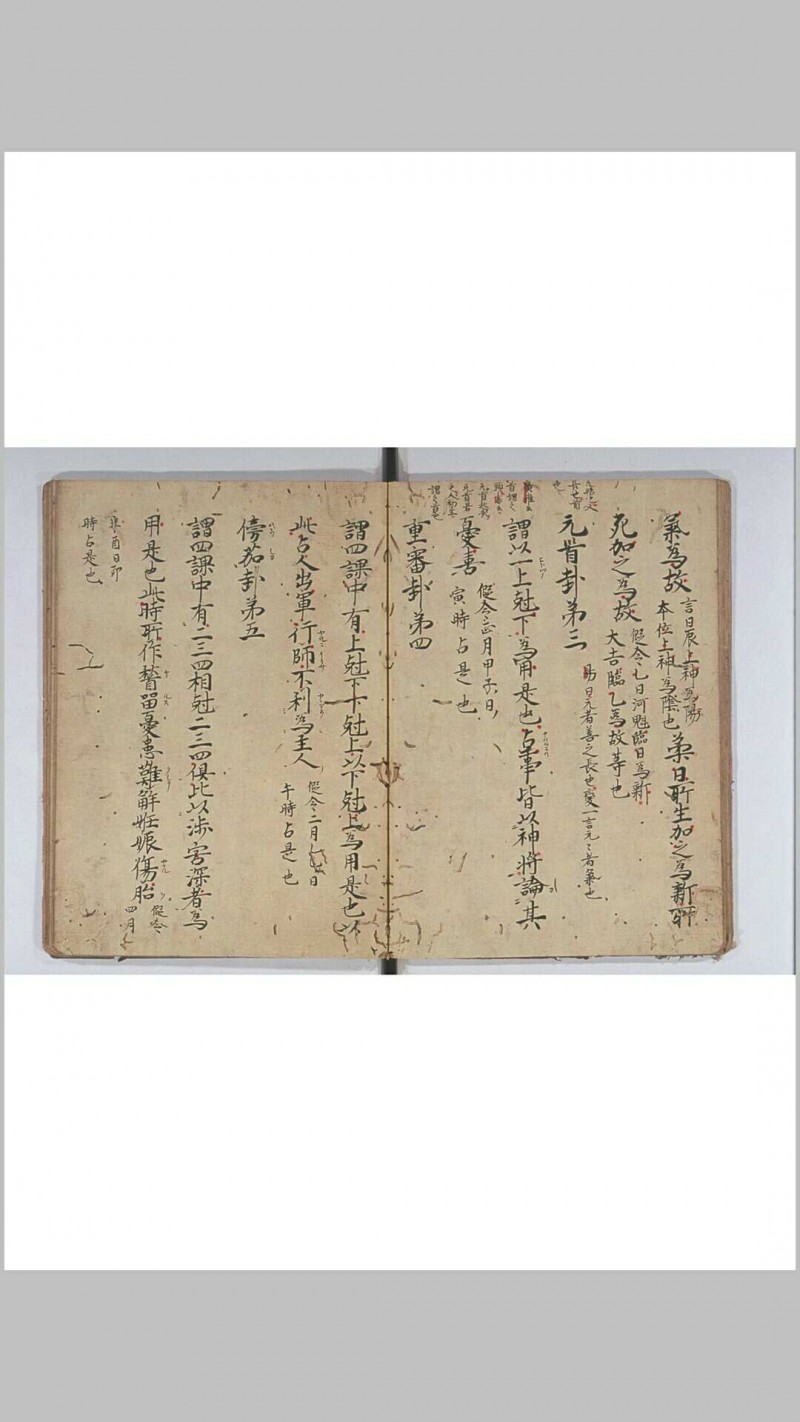 氣為故 言日辰上神為陽
本位上神為陰也 㐧日所生加之為新所
死加之為故 假令七日河魁臨日為新
大吉臨乙為故等也
元首卦第三 易曰元者善之長也 一言元々者氣也
謂以一上尅下為用是也占事皆以神將論其
憂喜 假令正月甲子日
寅時占是也
重審卦第四
謂四課中有上尅下下尅上以下尅上為用是也以
此占人出軍行師不利為主人 假令二月 日
午時占是也
傍茹卦第五
謂四課中有二三四相尅二三四俱比以涉害深者為
用是也此時所作 留憂患難解妊娠傷胎 假令
四月
酉日卯
時占是也